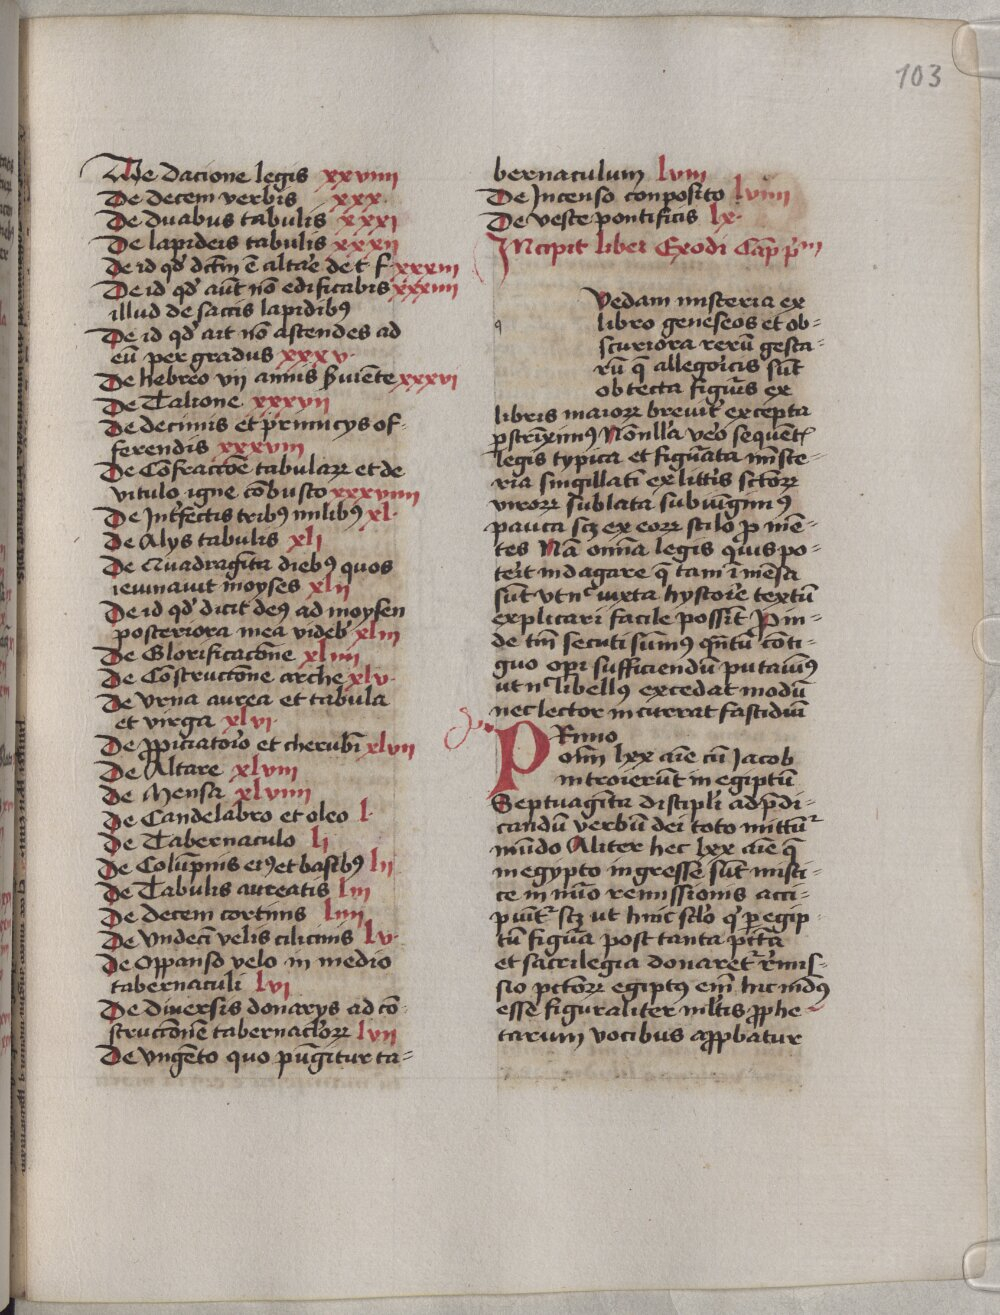 103
De dacione legis xxviiii
De decem verbis xxx
De duabus tabulis xxxi
De lapideis tabulis xxxii
De id qd̕ dc̄m ē altar̕e de t̕ f xxxiii
De id qd̕ aūt nō edificabis xxxiiii
illud de sectis lapidibꝰ
De id qd̕ ait nō ascendes ad
eū per gradus xxxv·
De hebreo vii annis s̄uiēte xxxvi
De Talione xxxvii
De decimis et p̄rimicijs of⸗
ferendis xxxviii
De Cōfraccōe tabulaꝝ et de
vitulo igne cōbusto xxxviiii
De Int̕fectis tribꝰ milibꝰ xl·
De Alijs tabulis xli
De Quadragīta diebꝰ quos
ieiunauit moyses xlii
De id qd̕ dicit deꝰ ad moysen
posteriora mea videb̕ xliii
De Glorificacōne xliiii
De Cōstructōne arche xlv·
De Vrna aurea et tabula
et virga xlvi·
De ꝓpiciatorio et cherubī xlvii
De Altare xlviii
De Mensa xlviiii
De Candelabro et oleo l·
De Tabernaculo li
De Colūpnis eiꝰ et basibꝰ lii
De Tabulis aureatis liii
De decem cortinis liiii
De Vndecī velis cilicinis lv·
De Oppanso velo in medio
tabernaculi lvi
De diuersis donarijs ad cō⸗
structōnē tabernacloꝝ lvii
De Vngēto quo pūgitur ta⸗
bernaculum lviii
De Incenso conposito lviiii
De veste pontificis lx·
INcipit liber Exodi Cap̄ p̄m
q
Vedam misteria ex
libro geneseos et ob⸗
scuriora rerū gesta⸗
rū q̄ allegoricis sūt
obtecta figuris ex
libris maioꝝ breuit̕ excepta
ꝑstrīximꝰ Nōnlla v̕o sequēt̕
legis typica et figūata miste⸗
ria singillatī ex litt̕is sctōꝝ
viroꝝ sublata subiūgimꝰ
pauca scꝫ ex eoꝝ stilo ꝓmē⸗
tes Nā omīa legis quis po⸗
terit indagare q̄ tam īmēsa
sūt vt n̕ iuxta hystorie textū
explicari facile possīt Pin⸗
de tm̄ secuti sumus qn̄tū cōti⸗
guo op̕i sufficiendū putauimꝰ
ut n̕ libellꝰ excedat modū
nec lector incurrat fastidiū
PRimo
om̄ lxx aīe cū Jacob
introierūt in egiptū
Septuagīta discipli̕ ad p̄di⸗
candū verbū dei toto mittūt̕
mūdo Aliter hec lxx aīe q̄
in egypto ingresse sūt misti⸗
ce in nūo remissionis acci⸗
piūt̕ scꝫ ut huic sclo̕ q̕ ꝑ egip⸗
tū figūa post tanta pctā
et sacrilegia donaret̕ r̕mis⸗
sio pctōꝝ egiptꝰ em̄ hic mūdꝰ
esse figuraliter mltis ꝓphe⸗
tarum vocibus apꝓbatur